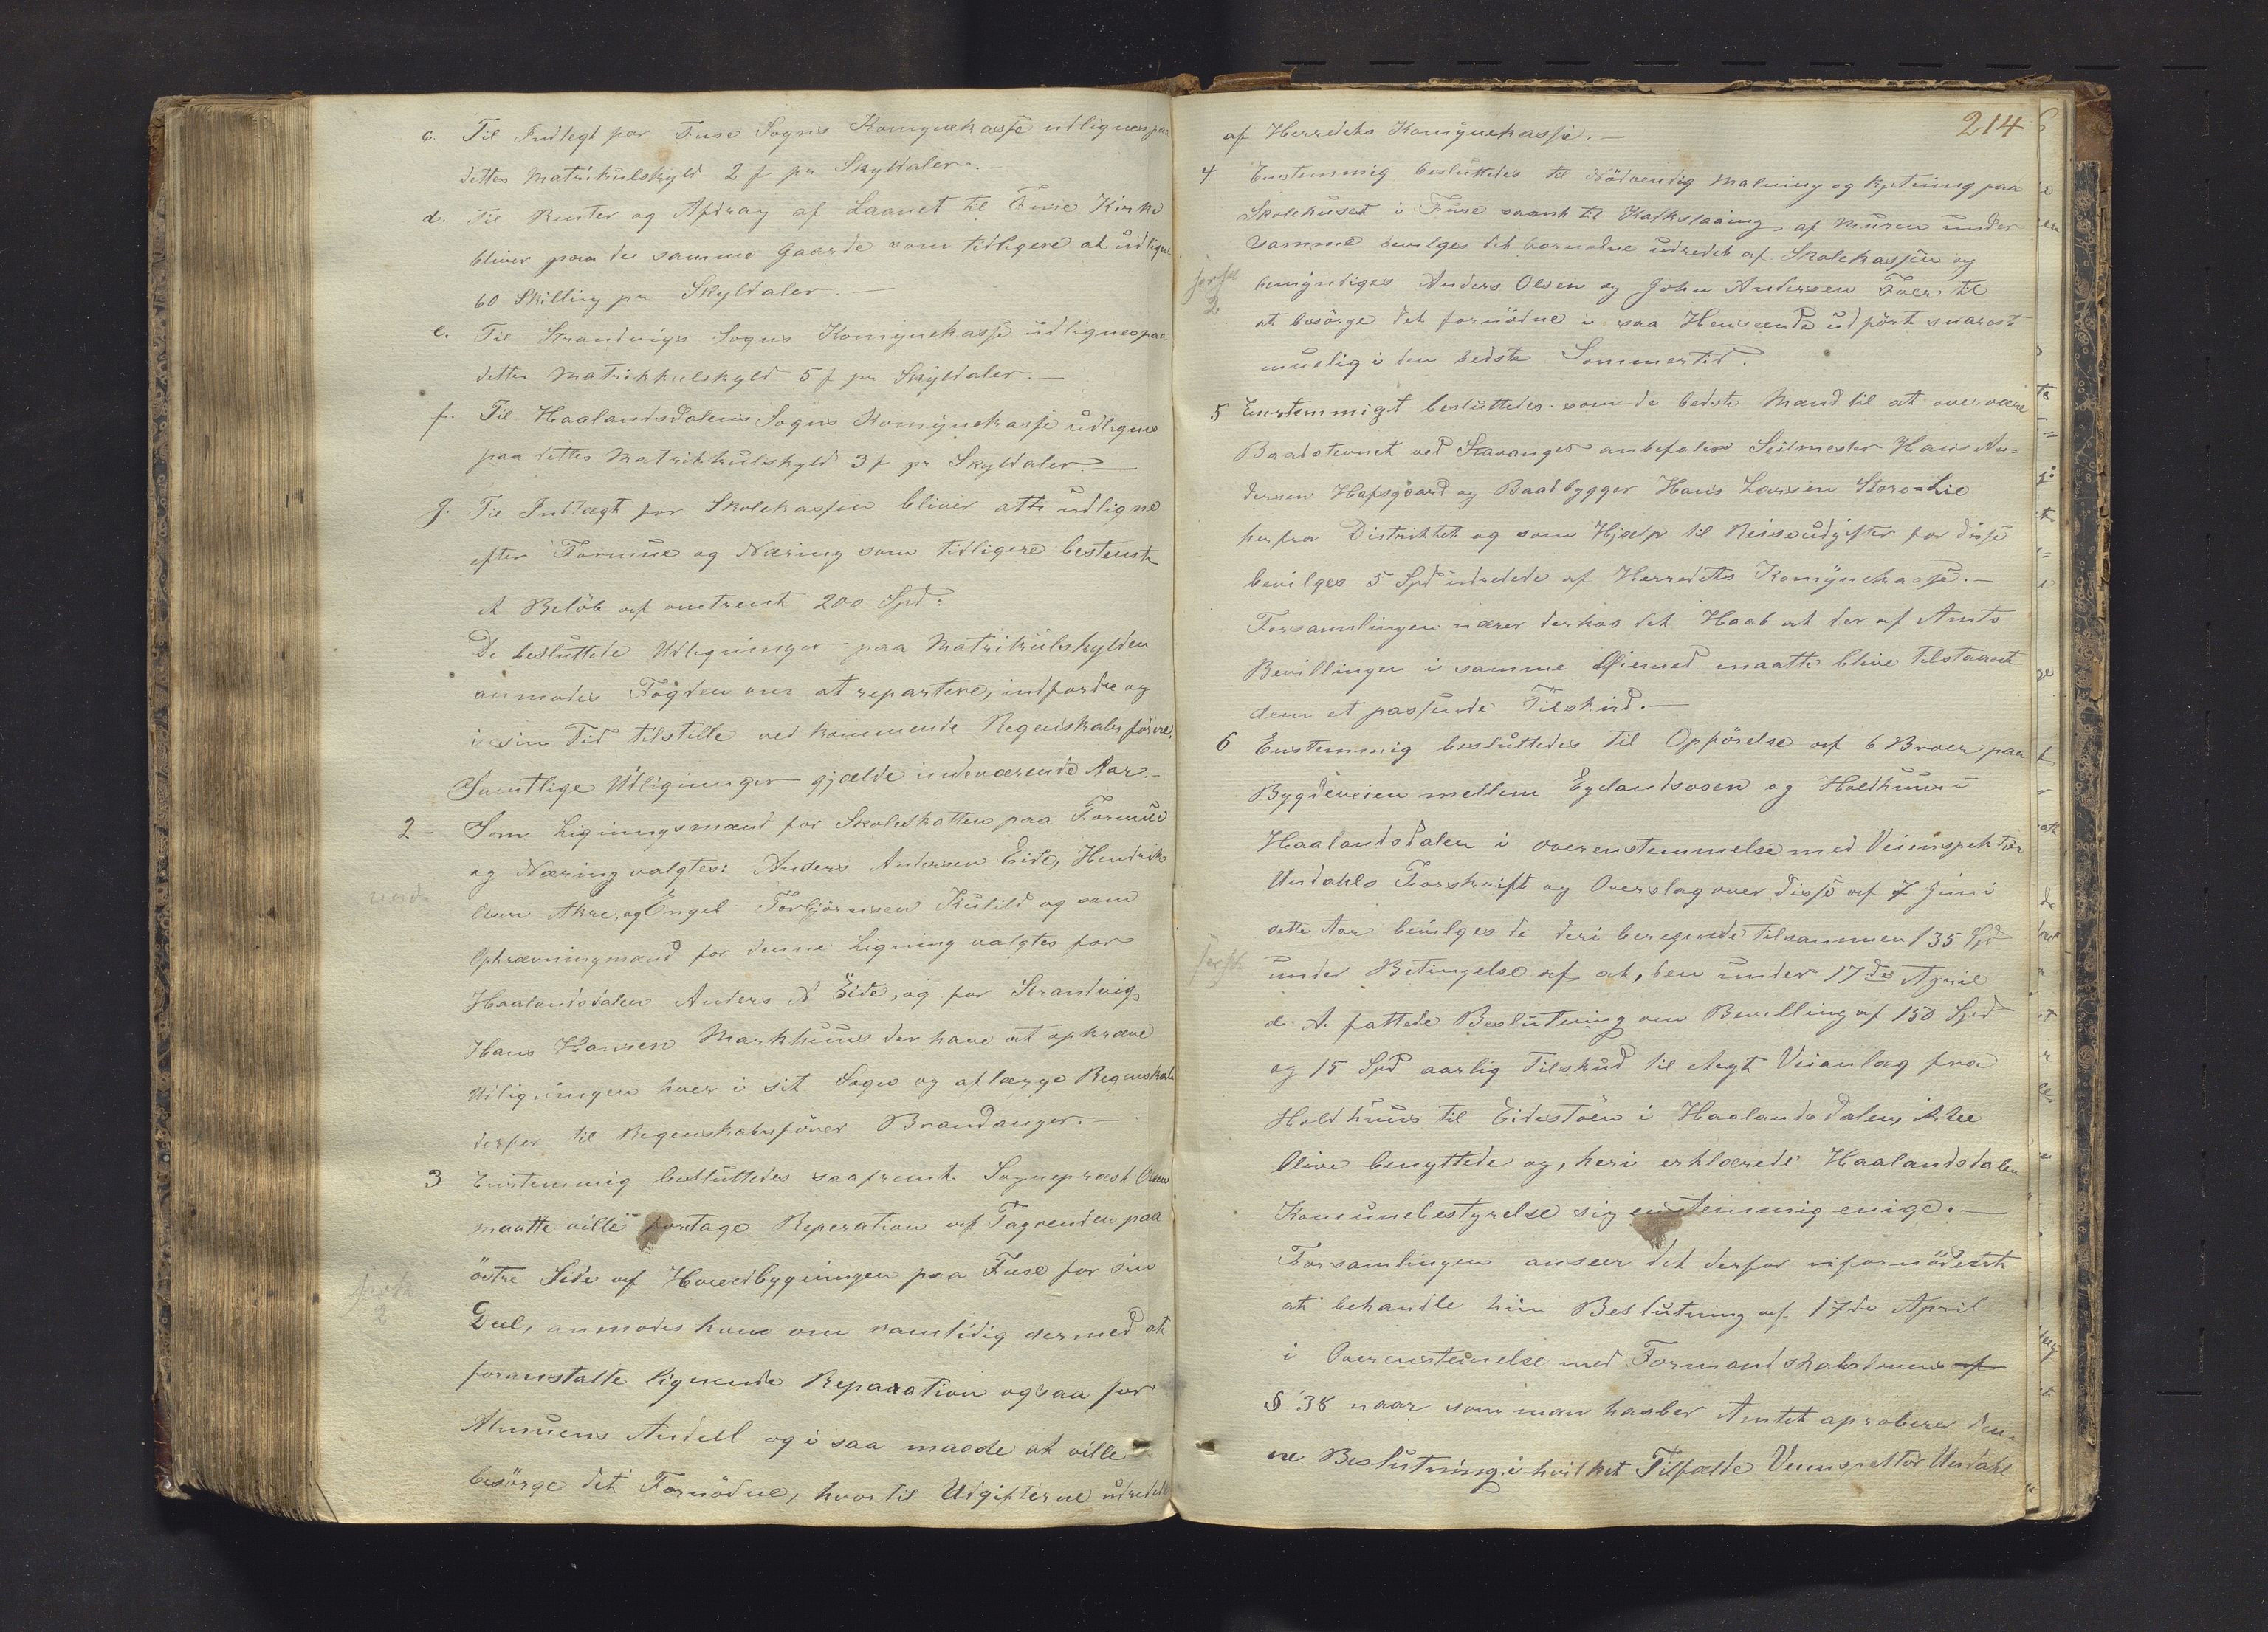 c. Til Indtegt for Fuse Sogns Komynekasse udlignes paa
dettes Matrikulskyld 2 f pr Skyldaler.-
d. Til Renter og Afdrag af Laanet til Fuse Kirke
bliver paa de samme Gaarde som tidligere at udligne
60 Skilling pr Skyldaler.-
e. Til Strandvigs Sogns Komynekasse udlignes paa
dettes Matrikkulskyld 5 f pr Skyldaler.-
f. Til Haalandsdalens Sogns Komynekasse udlignes
paa dettes Matrikkulskyld 3 f pr Skyldaler.-
g. Til Indtægt for Skolekassen bliver att udligne
efter Formue og Næring som tidligere bestemt
et Beløb af omtrent 200 Spd:
De besluttede Udligninger paa Matrikulskylden
anmodes Fogden om at repartere, indfordre og
i sin Tid tilstille ved kommende Regenskabsførere.
Samtlige Udligninger gjælde indeværende Aar.-
2 - Som Ligningsmænd for Skoleskatten paa Formue
og Næring valgtes: Anders Andersen Eide, Hendrik
Olsen Akre, og Engel Torbjørnsen Kulild og som
Opkrævningsmænd for denne Ligning valgtes for
Haalandsdalen Anders A Eide, og for Strandvig
Hans Hansen Markhuus der have at opkræve
Udligningen hver i sit Sogn og aflægge Regnskab
derfor til Regenskabsfører Brandanger.-
3 Enstemmig besluttedes saafremt Sogneprest
maatte ville foretage Reperation af Tagrenden paa
östre Side af Hovedbygningen paa Fuse for sin
Deel, anmodes han om samtidig dermed at
foranstalte lignende Reparation ogsaa for
Almuens Andell og i saa maade at ville
besørge det Fornødne, hvortil Udgifterne udredes
214
af Herredets Komynekasse.-
4 Enstemmig besluttedes til Nödvendig Malning og Kjetning paa
Skolehuset i Fuse saamt til Kalkslaaing af Muren under
samme bevilges det fornødne udredet af Skolekassen og
bemyndiges Anders Olsen og John Andersen Foer til
at besørge det fornödne i saa Henseende udført snarest
muelig i den bedste Sommertid.
5 Enstemmigt besluttedes som de bedste Mænd til at overvære
Baadstevnet ved Stavanger anbefales Seilmester Hans An=
dersen Hafsgaard og Baadbygger Hans Larsen Store-Lie
herfra Distriktet og som Hjælp til Reiseudgifter for disse
bevilges 5 Spd udredede af Herredets Komynekasse.-
Forsamlingen nærer derhos det Haab at der af Amts
Bevillingen i samme Øiemed maatte blive tilstaaet
dem et passende Tilskud.-
6 Enstemmig besluttedes til Opførelse af 6 Broer paa
Bygdeveien mellem Eydandsosen og Holdhuus i
Haalandsdalen i overenstemmelse med Veiinspektör
Undahls Forskrift og Overslag over disse af 7 Juni
dette Aar bevilges de deri beregnede tilsammen 135 Spd
under Betingelse af at, den under 17de April
d. A. fattede Beslutning om Bevilling af 150 Spd
og 15 Spd aarlig Tilskud til Veianlæg fra
Holdhuus til Eidestöen i Haalandsdalen, ikke
blive benyttede og, heri erklærede Haalandsdalen
Komunebestyrelse sig enstemmig enige.-
Forsamlingen anseer det derfor ufornödent
at behandle hin Beslutning af 17de April
i Overenstemelse med Formandskabslovens af
§ 38 naar som man haaber Amtet aproberer den=
ne Beslutning, i hvilket Tilfælde Veiinspektör Undahl